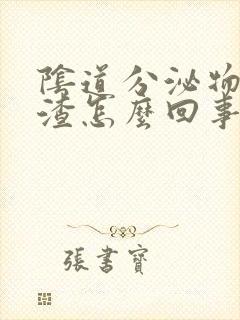 陰道分泌物
渣怎麼回事
張書寶